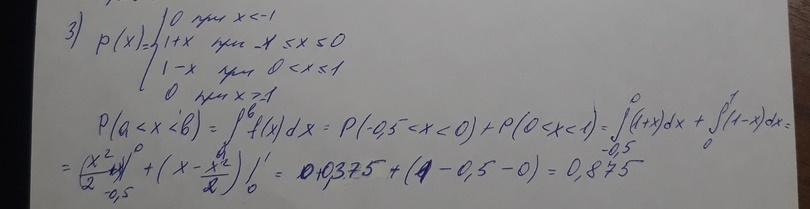 0 при x<-1
3) p(x)={1+x при -1≤x≤0
1-x при 0<x≤1
0 при x>1
P(a<x<b) = ∫_a^b f(x)dx = P(-0,5<x<0)+P(0<x<1)= ∫_{-0,5}^0 (1+x)dx + ∫_0^1 (1-x)dx =
= (x²/2 + x)|_{-0,5}^0 + (x - x²/2)|_0^1 = 0+0,375 + (1-0,5-0) = 0,875